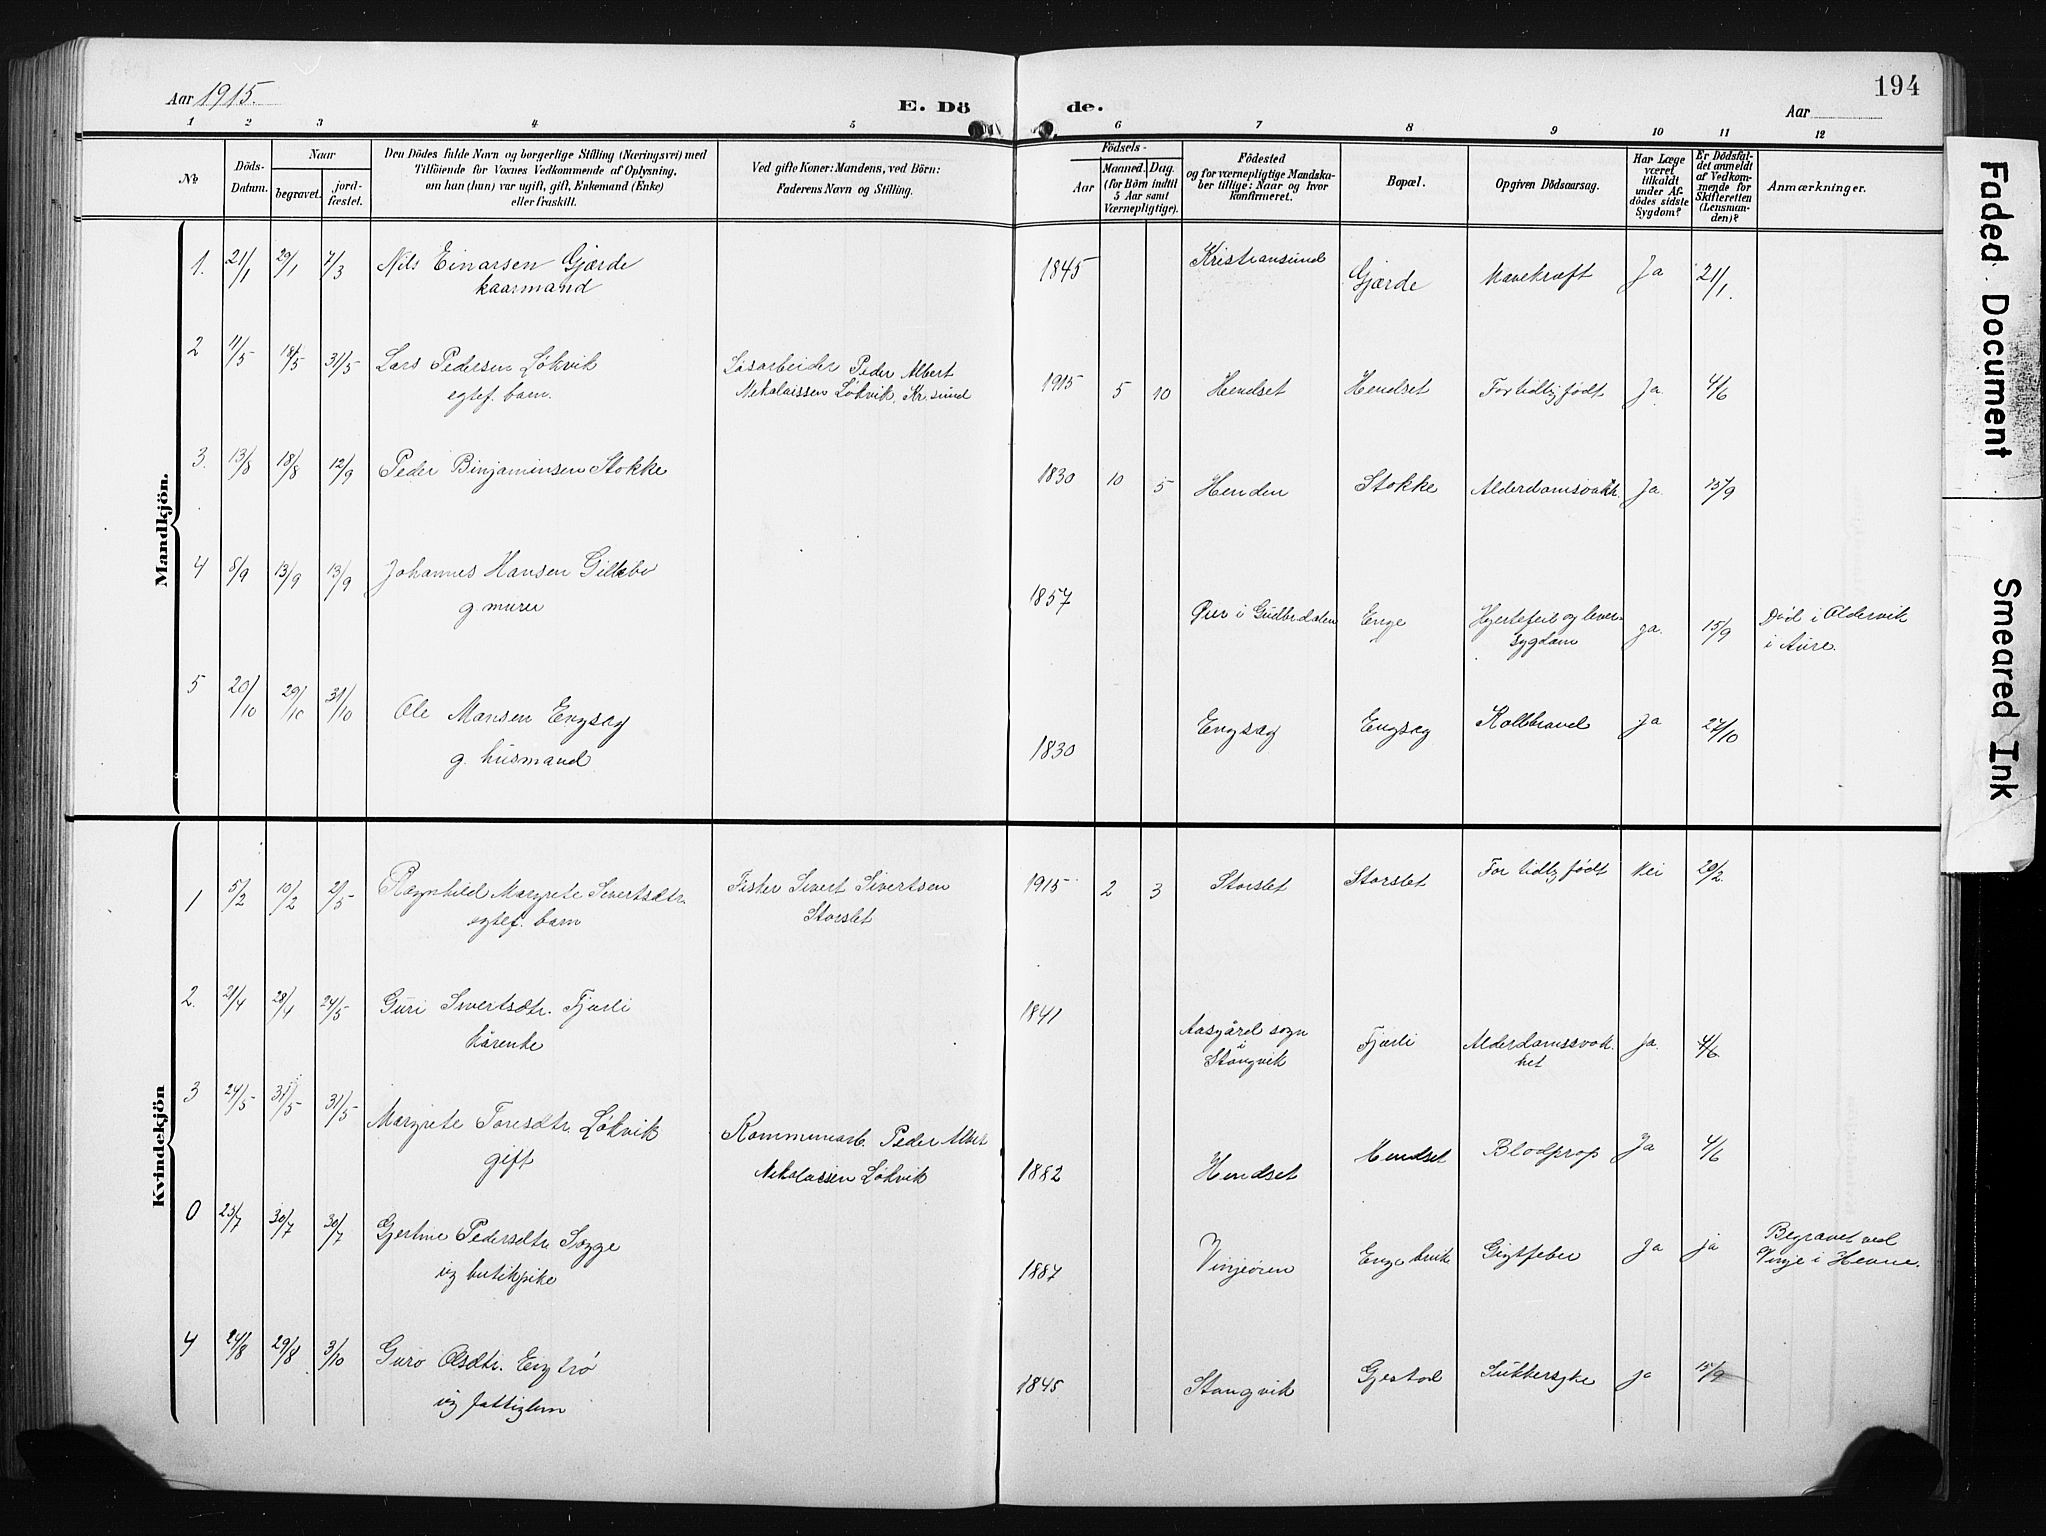 194
Aar 1915.
E. Döde.
Aar
1 2 3 4 5 6 7 8 9 10 11 12
No
Döds-Datum.
Naar
begravet.
jord-fæstet.
Den Dödes fulde Navn og borgerlige Stilling (Næringsvei) med
Tilföiende for Voxnes Vedkommende af Oplysning,
om han (hun) var ugift, gift, Enkemand (Enke)
eller fraskilt.
Ved gifte Koner: Mandens, ved Börn:
Faderens Navn og Stilling.
Födsels-
Aar
Maaned. Dag.
(for Börn indtil
5 Aar samt
Værnepligtige).
Födested
og for værnepligtige Mandska-
ber tillige: Naar og hvor
konfirmeret.
Bopæl.
Opgiven Dödsaarsag.
Har Læge
været
tilkaldt
under Af-
dödes sidste
Sygdom?
Er Dödsfal-
det anmeldt
af Vedkom-
mende for
Skifteretten
(Lensman-
den)?
Anmærkninger.
Mandkjön.
1. 21/1 29/1 7/3 Nils Einarsen Gjærde 1845 Kristiansund Gjærde Mavekræft Ja 21/1.
kaarmand
2 11/5 18/5 31/5 Lars Pedersen Løkvik Løsarbeider Peder Albert 1915 5 10 Hendset Hendset For tidlig født Ja. 4/6
egtef. barn. Nikolaissen Løkvik. Kr.sund
3. 13/8 18/8 12/9 Peder Binjaminsen Stokke 1830 10 5 Henden Stokke Alderdomssvakh. Ja. 13/9
4 8/9 13/9 13/9 Johannes Hansen Gillebo 1857 Øier i Gudbrdalen Enge Hjertefeil og lever- ja. 15/9 Død i Oldervik
g. murer sygdom i Aure.
5 20/10 29/10 31/10 Ole Monsen Engsæg 1830 Engsæg Engsæg Koldbrand Ja 27/10
g. husmand
Kvindekjön
1 5/2 10/2 2/5 Ragnhild Margrete Sivertsdtr. Fisker Sivert Sivertsen 1915 2 3 Storslet Storslet For tidlig født Nei 20/2
egtef. barn Storslet
2. 21/4 28/4 24/5 Guri Sivertsdtr. Fjærli 1841 Aasgård sogn Fjærli Alderdomssvak- Ja. 4/6
kårenke i
Stangvik het
3 24/5 31/5 31/5 Margrete Toresdtr. Løkvik Kommunearb. Peder Albert 1882 Hendset Hendset Blodprop Ja 4/6
gift Nikolaissen Løkvik
0 23/7 30/7 30/7 Gjertine Pedersdtr Sogge 1887 Vinjeøren Engebrik Gigtfeber Ja ja Begravet ved
ug butikpike Vinje i Hevne.
4 24/8 29/8. 3/10 Guro Olsdtr. Engtrø 1845 Stangvik Gjestad Sukkersyke ja 15/9
ug fattiglem
Faded Document
Smeared Ink